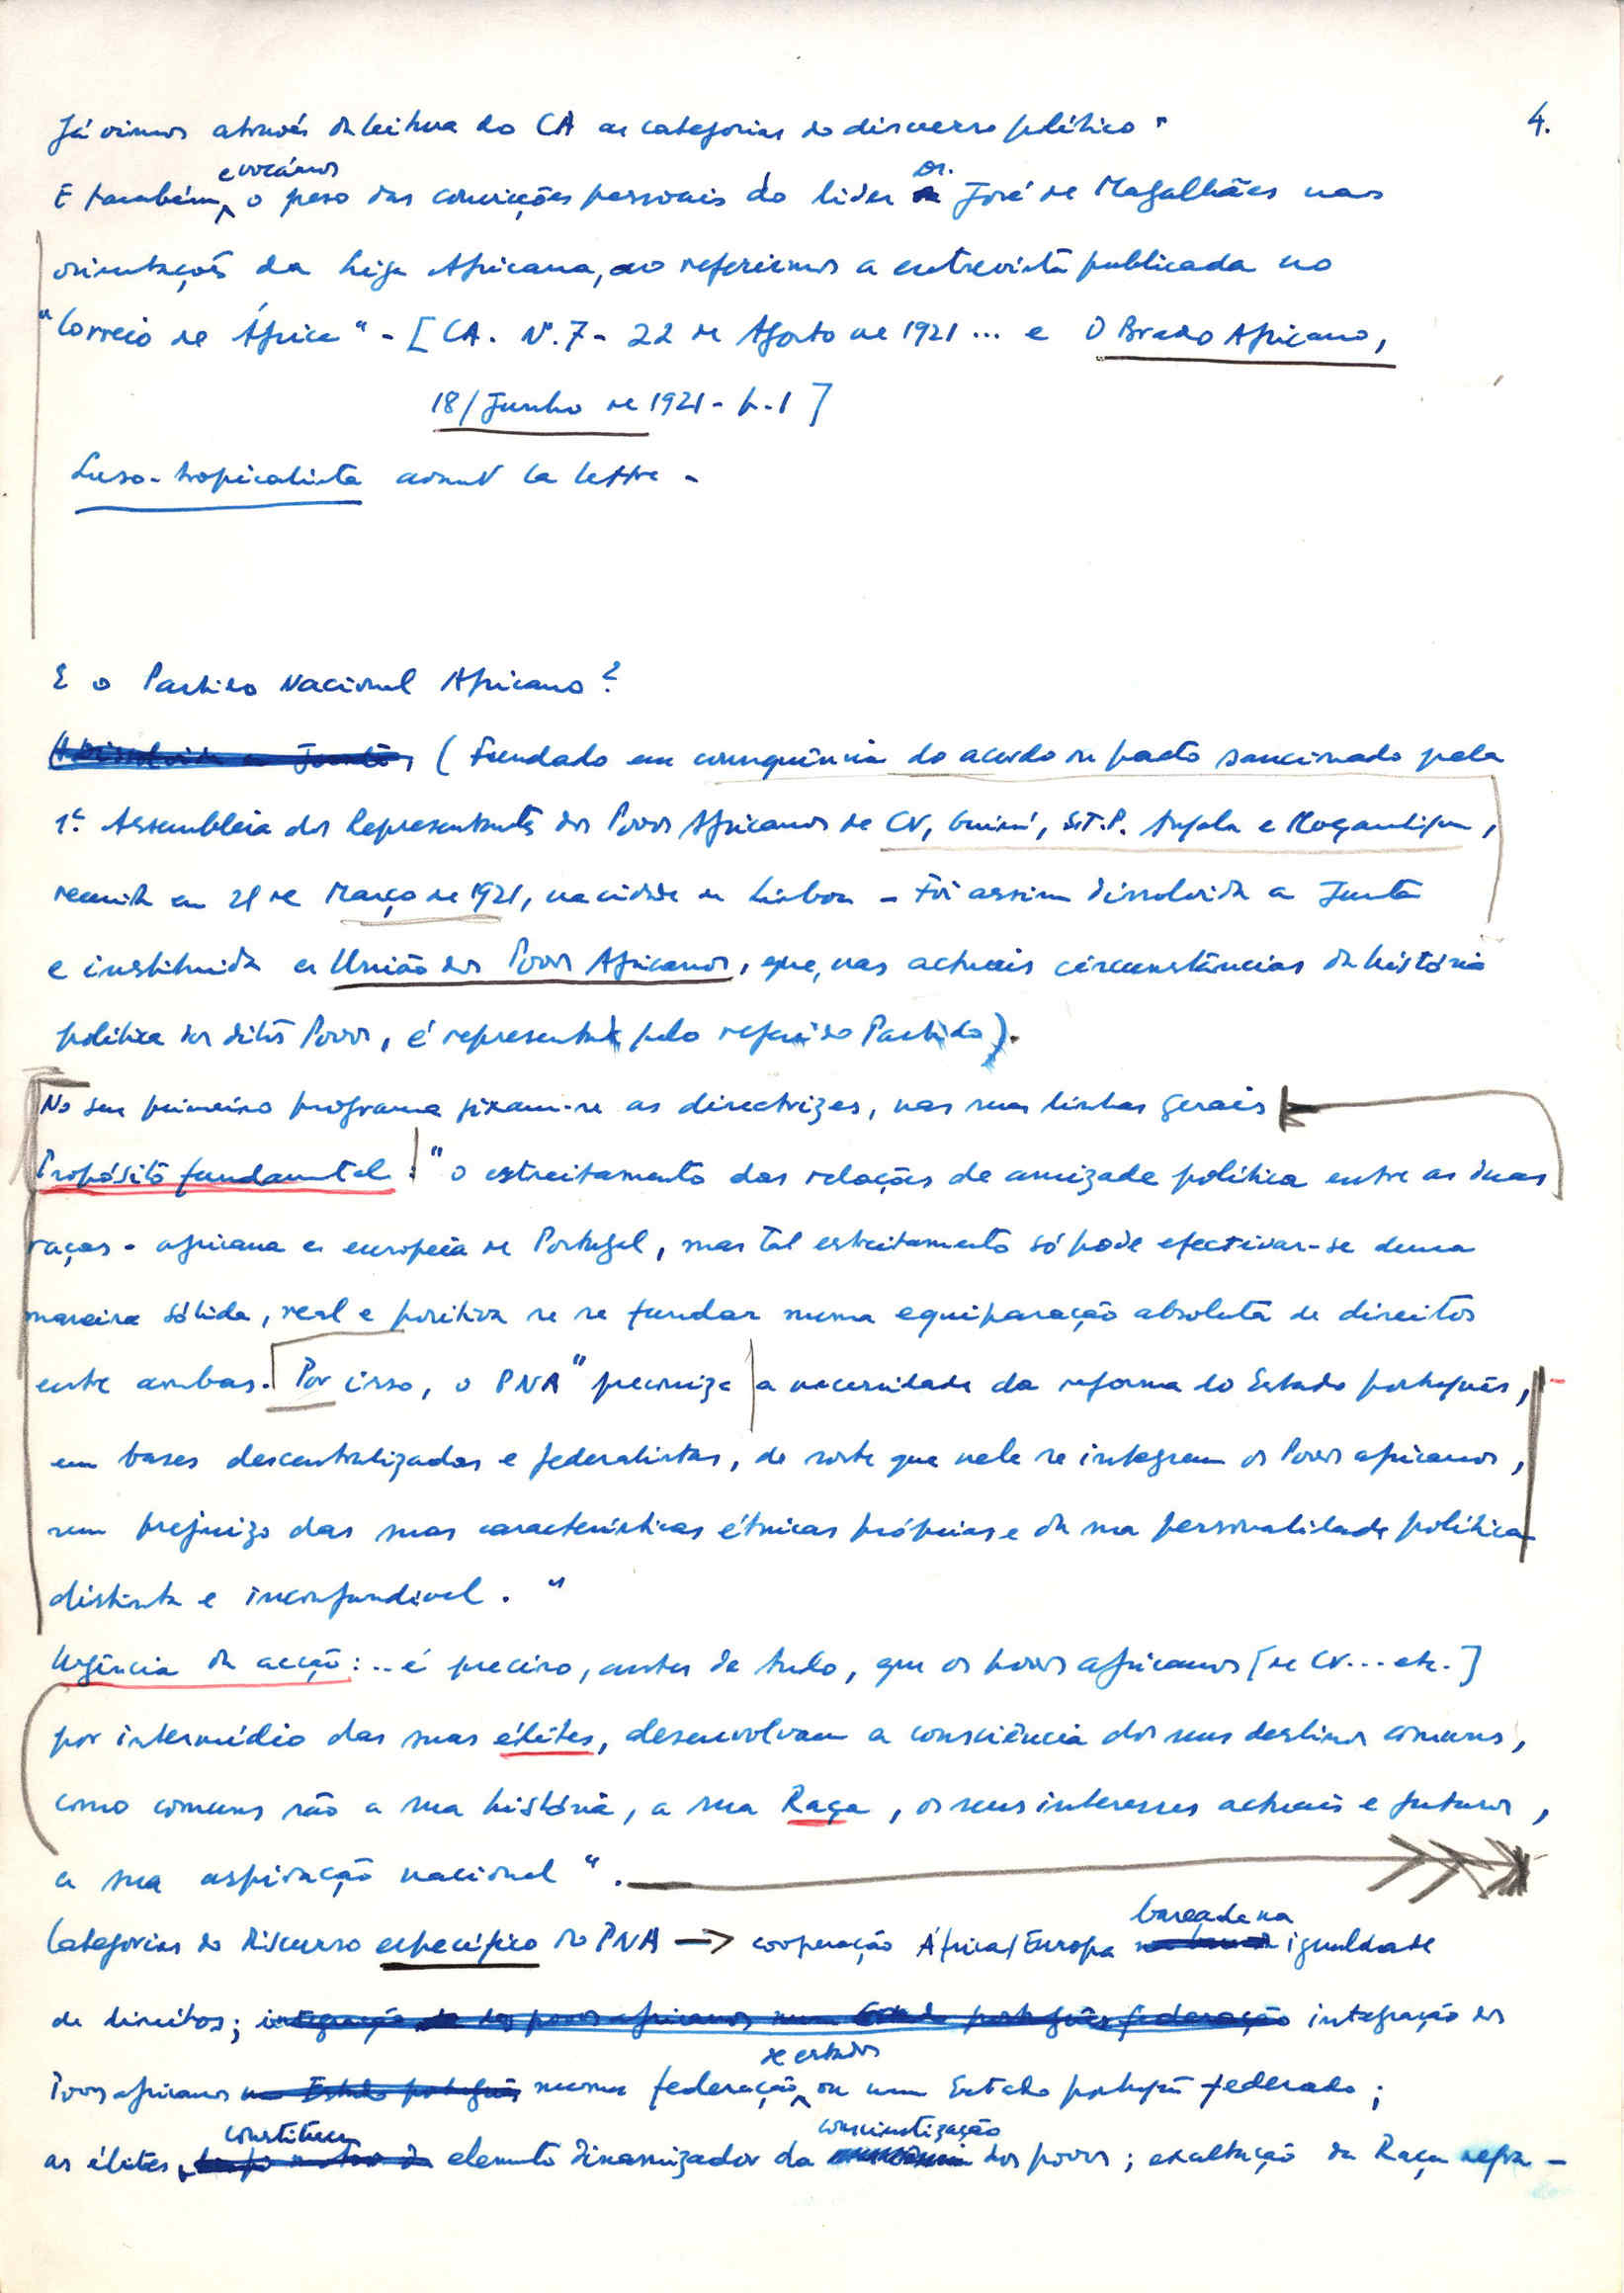 4.
Já vimos através da leitura do CA as categorias do discurso político.
E também evocámos o peso das convicções pessoais do lider Dr. José de Magalhães nas
orientações da Liga Africana, ao referirmos a entrevista publicada no
"Correio de África" - [CA. Nº. 7 - 22 de Agosto de 1921 ... e O Brado Africano,
18/Junho de 1921 - p. 1]
Luso-tropicalista avant la lettre -
E o Partido Nacional Africano?
(Fundado em consequência do acordo ou pacto sancionado pela
1ª. Assembleia dos Representantes dos Povos Africanos de CV, Guiné, S.T.P. Angola e Moçambique,
reunida em 28 de Março de 1921, na cidade de Lisboa - Foi assim dissolvida a Junta
e instituida a União dos Povos Africanos, que, nas actuais circunstâncias da história
política dos ditos Povos, é representada pelo referido Partido).
No seu primeiro programa fixam-se as directrizes, nas suas linhas gerais
Propósito fundamental: "o estreitamento das relações de amizade política entre as duas
raças - africana e europeia de Portugal, mas tal estreitamento só pode efectivar-se duma
maneira sólida, real e positiva se se fundar numa equiparação absoluta de direitos
entre ambas. Por isso, o PNA" preconiza a necessidade da reforma do Estado português,
em bases descentralizadas e federalistas, de sorte que nele se integrem os Povos africanos,
sem prejuizo das suas características étnicas próprias e da sua personalidade política
distinta e inconfundivel."
Urgência da acção: .. é preciso, antes de tudo, que os povos africanos [de CV... etc.]
por intermédio das suas élites, desenvolvam a consciência dos seus destinos comuns,
como comuns são a sua história, a sua Raça, os seus interesses actuais e futuros,
a sua aspiração nacional".
Categorias do Discurso específico do PNA → cooperação África/Europa baseada na igualdade
de direitos; integração dos
Povos africanos numa federação de estados ou num Estado português federado;
as élites constituem elemento dinamizador da consciencialização dos povos; exaltação da Raça negra -